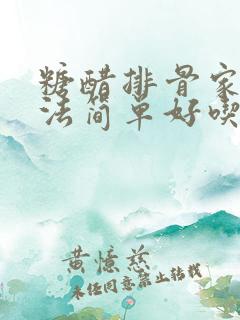 糖醋排骨家
法简单好喫
黄憶慈
未经同意禁止转载